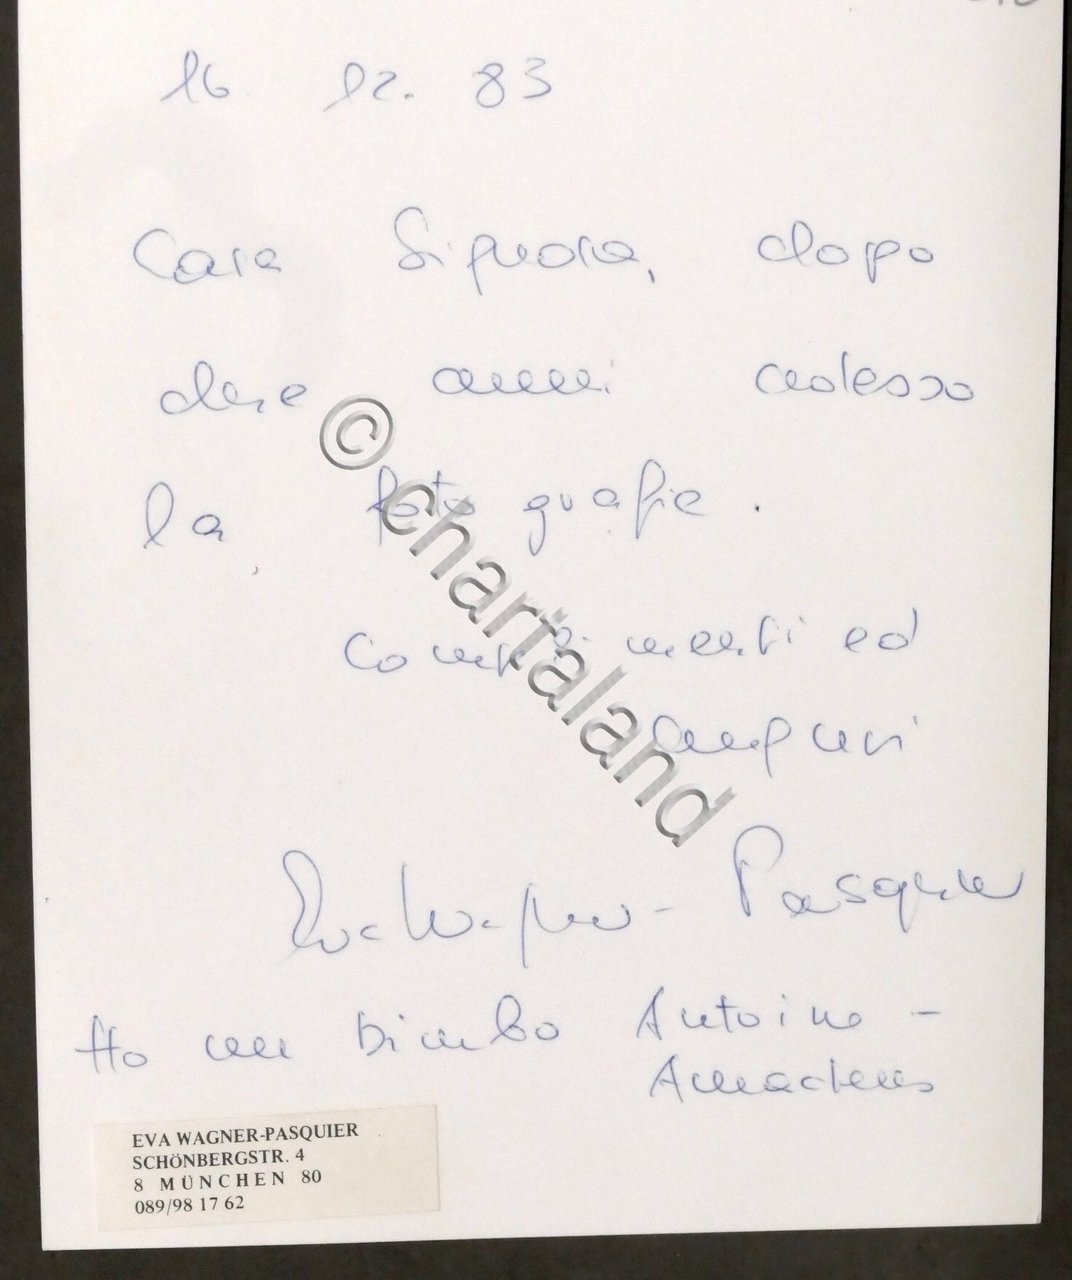 16 12. 83
Cara Signora, dopo
due anni adesso
la fotografie.
Complimenti ed
auguri
Eva Wagner-Pasquier
Ho un bimbo Antoine-
Amadeus
EVA WAGNER-PASQUIER
SCHÖNBERGSTR. 4
8 MÜNCHEN 80
089/98 17 62
© chartaland